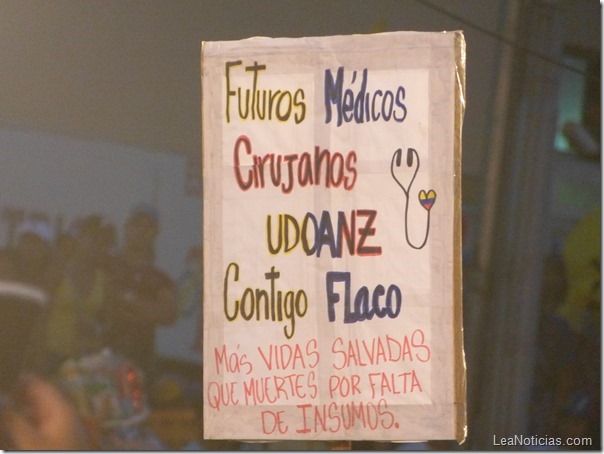 Futuros Médicos
Cirujanos
UDOANZ
Contigo Flaco
Más VIDAS SALVADAS
QUE MUERTES POR FALTA
DE INSUMOS.
LeaNoticias.com